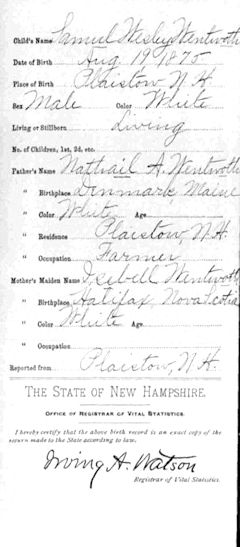 Child's Name Samuel Wesley Wentworth
Date of Birth Aug. 19 1875
Place of Birth Plaistow, N.H.
Sex Male Color White
Living or Stillborn Living
No. of Children, 1st, 2d, etc.
Father's Name A. Wentworth
" Birthplace Denmark Maine
" Color White Age
" Residence Plaistow, N.H.
" Occupation Farmer
Mother's Maiden Name Isibell Wentworth
" Birthplace Halifax, Nova Scotia
" Color White Age
" Occupation
Reported from Plaistow, N.H.
THE STATE OF NEW HAMPSHIRE.
OFFICE OF REGISTRAR OF VITAL STATISTICS.
I hereby certify that the above birth record is an exact copy of the
return made to the State according to law.
Irving A. Watson
Registrar of Vital Statistics.